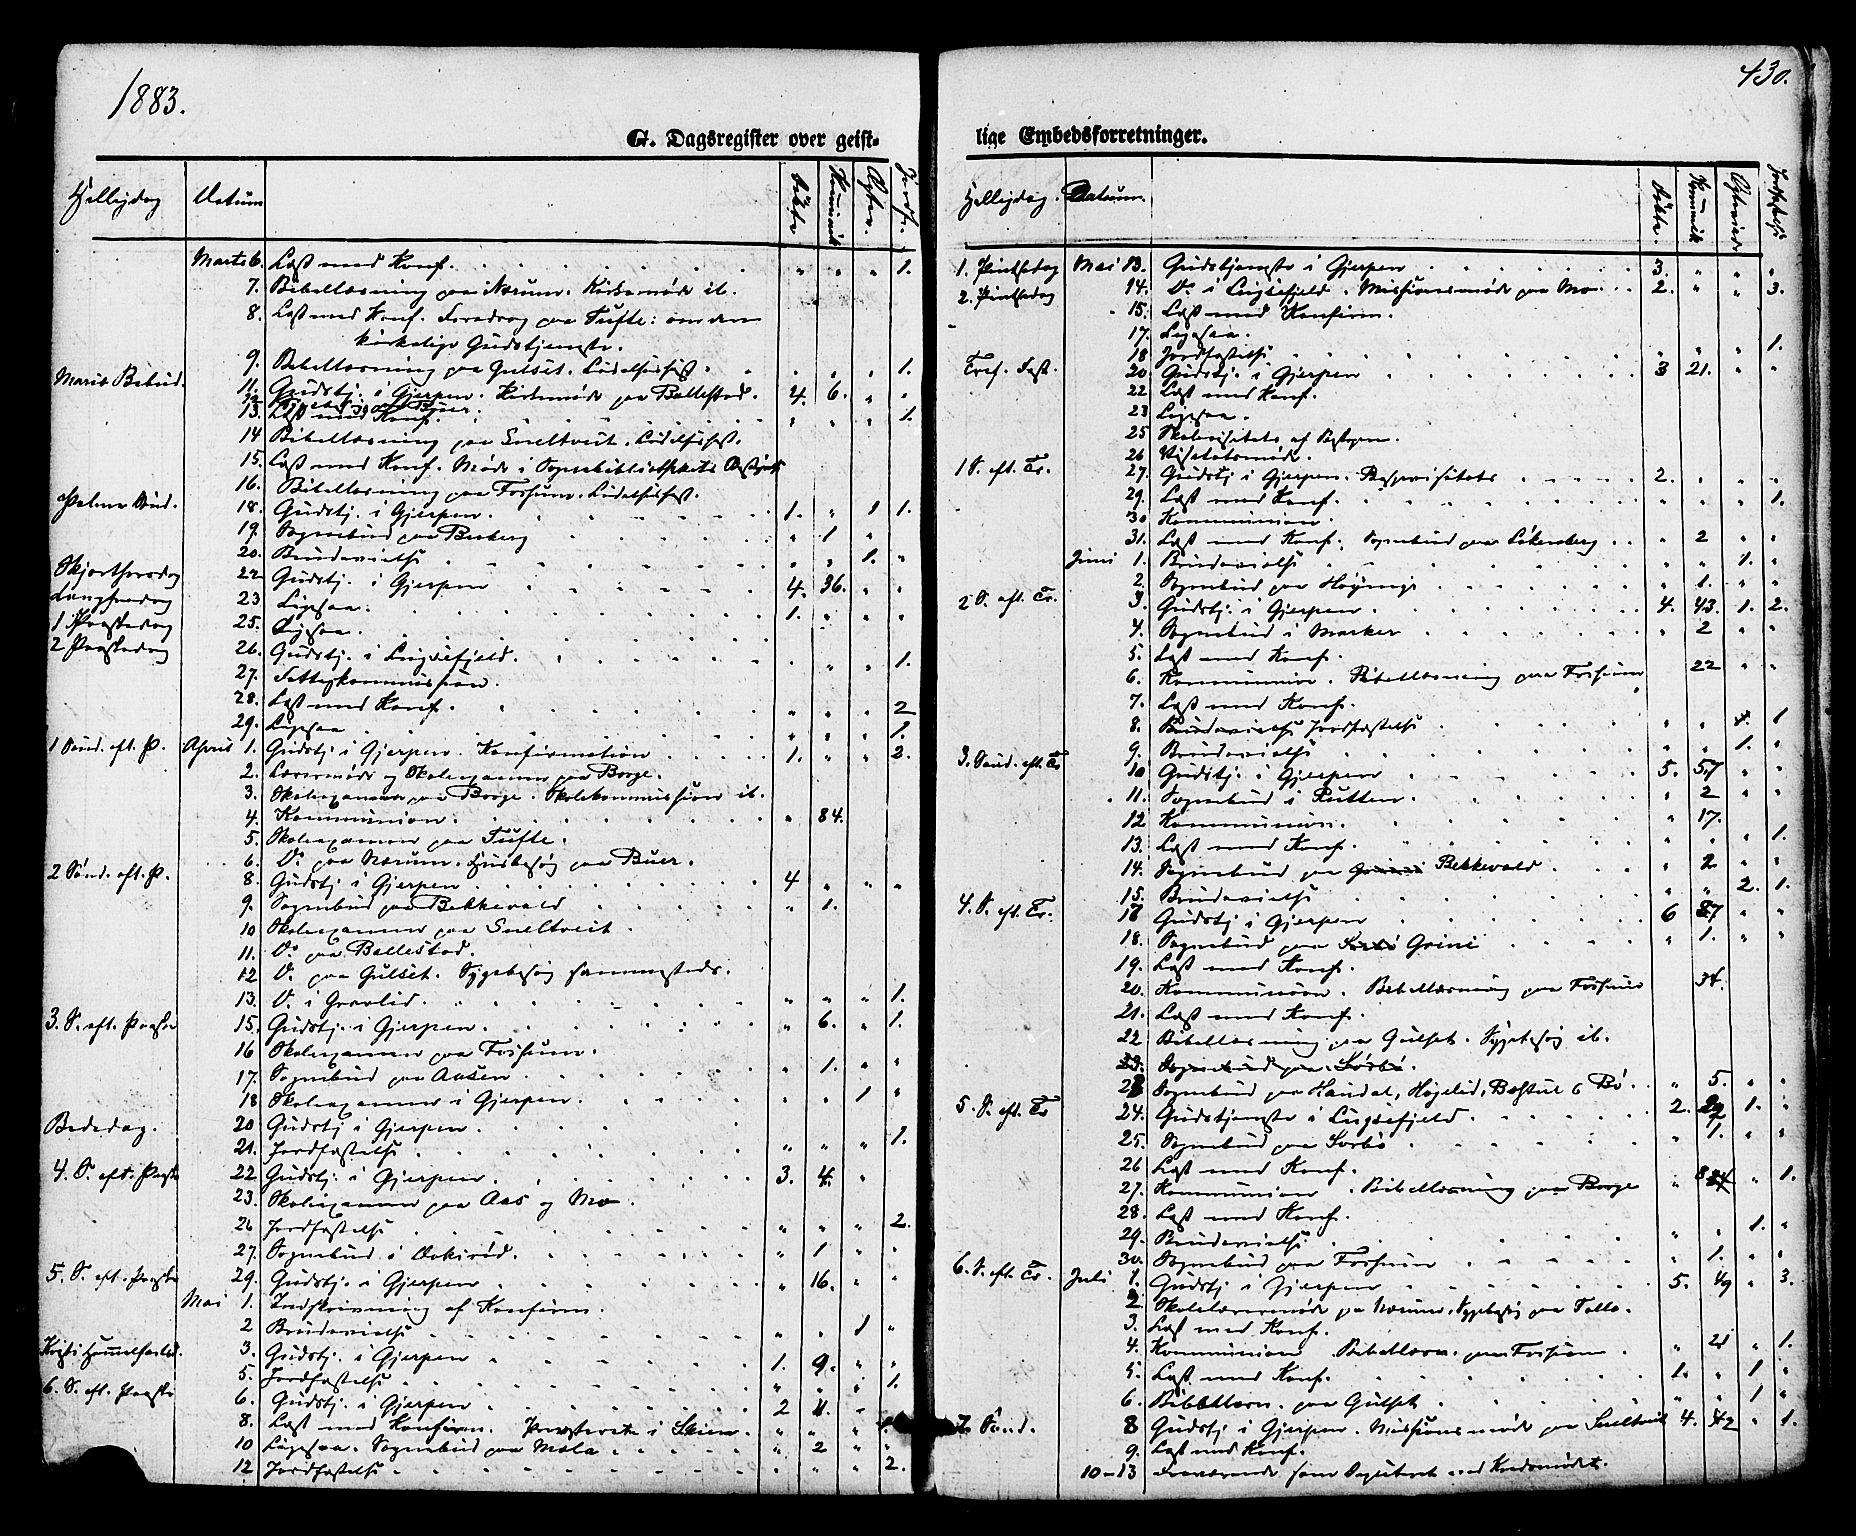 1883.
430.
G. Dagsregister over geist-
lige Embedsforretninger.
Helligdag Datum Døbte. Kommunik. Ægtev. Jordf.
Marts 6. Læst med Konf. . . . " " " 1.
7. Bibellæsning paa Nærum. Kirkemøde ib.
8. Læst med Konf. Foredrag paa Tufte: om den
kirkelige Gudstjeneste.
9. Bibellæsning paa Gulset. Ludelsfest. . " " " 1.
Mariæ Bebud. 11. Gudstj. i Gjerpen. Kirkemøde paa Ballestad. 4. 6. " "
12.
13. Læst med Konf. . . . " " " 1.
14 Bibellæsning paa Sneltveit.
15. Læst med Konf. Møde i Sognebibliothekets
16. Bibellæsning paa Fossum.
Palme Sønd. 18. Gudstj. i Gjerpen. . . . 1. " 1 1.
19. Sognebud paa Berberg . . . " 1 "
20. Brudevielse . . . " " 1. "
Skjærthorsdag 22 Gudstj. i Gjerpen . . . 4. 36. " "
Langfredag 23 Ligesaa. . . . 1. " " "
1 Paaskedag 25. Ligesaa.
2 Paaskedag 26. Gudstj. i Luxefjeld. . . . " " 1.
27. Fattigkommission.
28. Læst med Konf. . . . " " " 2
29. Ligesaa . . . " " " 1.
1 Sønd. eft. P. April 1. Gudstj. i Gjerpen. Konfirmation . . . 1. " " 2.
2. Lærermøde og Skolexamen paa Borge.
3. Skolexamen paa Borge. Skolekommission ib.
4. Kommunion. . . . " 84.
5. Skolexamen paa Tufte.
6. Do paa Nærum. Husbesøg paa Buer.
2 Sønd. eft. P. 8. Gudstj. i Gjerpen . . . 4 " " "
9. Sognebud paa Bekkevold . . . " 1.
10 Skolexamen paa Sneltveit.
11. Do paa Ballestad.
12 Do paa Gulset. Sygebesøg sammesteds.
13. Do i Gravlid. . . . " " " 1.
3. S. eft. Paaske 15. Gudstj. i Gjerpen. . . . " 6. " 1.
16 Skolexamen paa Fossum.
17. Sognebud paa Aasen . . . " 1. " "
18 Skolexamen i Gjerpen. . . . " " 1 "
Bededag. 20 Gudstj. i Gjerpen . . .
21. Jordfæstelse . . . " " " 1.
4. S. eft. Paaske 22 Gudstj. i Gjerpen. . . . 3. 4. "
23. Skolexamen paa Aas og Mo.
26 Jordfæstelse . . . " " " 2.
27. Sognebud i . . . " 1 " "
5. S. eft. Paaske 29. Gudstj. i Gjerpen . . . " 16. " "
Mai 1. Indskrivning af Konfirm.
2 Brudevielse . . . " " 1 "
Kristi Himmelfartsd. 3. Gudstj. i Gjerpen . . . 1. 9. " "
5. Jordfæstelse . . . " " " 1.
6. S. eft. Paaske 6. Gudstj. i Gjerpen . . . 2
8. Læst med Konfirm. i Skien. " " " "
10 Ligesaa. Sognebud paa Mæla . . . " 2 " "
12 Jordfæstelse . . . " " " 2.
Helligdag. Datum. Døbte. Kommunik Ægteviede Jordfæstelse
1. Pintsedag Mai 13. Gudstjeneste i Gjerpen . . . 3. " " "
2. Pintsedag 14. Do i Luxefjeld. Missionsmøde paa Mo . . 2. " " 3.
15. Læst med Konfirm.
17. Ligesaa.
18 Jordfæstelse . . . " " " 1.
Tref. Fest. 20 Gudstj. i Gjerpen . . . 3 21. " "
22 Læst med Konf.
23 Ligesaa.
25 Skolevisitats af Bispen.
26 Visitatsmøde.
1 S. eft. Tr. 27. Gudstj i Gjerpen. Bispevisitats . . . 2. " " "
29. Læst med Konf. . . . " " " 1.
30 Kommunion.
31. Læst med Konf. Sognebud paa Løkensberg . . " 2 " "
Juni 1. Brudevielse . . . " " 1. "
2. Sognebud paa . . . " 1. " "
2 S. eft. Tr. 3. Gudstj. i Gjerpen . . . 4. 43. 1. 2.
4. Sognebud i Marker . . . " 2 " "
5. Læst med Konf.
6. Kommunion. Bibellæsning paa Fossum 22 " "
7. Læst med Konf.
8. Brudevielse Jordfæstelse . . . " " 1
9. Brudevielse . . . " " 1. "
3. Sønd. eft. Tr 10 Gudstj. i Gjerpen . . . 5. 57 " "
11. Sognebud i Putten. . . . " 2 " "
12 Kommunion. . . . " 17.
13. Læst med Konf. . . . " " " 1.
14. Sognebud paa Bekkevold . . . " 2 " "
15. Brudevielse . . . " " 2. 1.
4. S. eft. Tr. 17 Gudstj. i Gjerpen . . . 6 " "
18. Sognebud paa Grini . . . " 1. " "
19. Læst med Konf.
20. Kommunion. Bibellæsning paa Fossum 34.
21. Læst med Konf.
22 Bibellæsning paa Gulset. Sygebesøg ib.
23. Sognebud paa Sørbø.
Sognebud paa Haudal, Høgelid, Bø . . " 5. " "
5. S. eft. Tr 24. Gudstjeneste i Luxefjeld . . . 2. 1. "
25. Sognebud paa Sørbø . . . " 1. " "
26 Læst med Konf.
27. Kommunion. Bibellæsning paa Borge " " 1.
28. Læst med Konf.
29. Brudevielse . . . " " 1. "
30. Sognebud paa Fossum . . . " 1. " "
6. S. eft. Tr. Juli 1. Gudstj. i Gjerpen . . . 5. 49 " 3.
2 Skolelærermøde paa Nærum. Sygebesøg paa
3. Læst med Konf.
4. Kommunion Bibellæsn. paa Fossum . " 21 " 1.
5. Læst med Konf. . . . 1. " 1 "
6. Bibellæsn. paa Gulset . . . " " 1 "
7. Sønd. 8 Gudstj. i Gjerpen. Missionsmøde paa Sneltveit 4. 42 " 1.
9. Læst med Konf.
10-13 Fraværende som